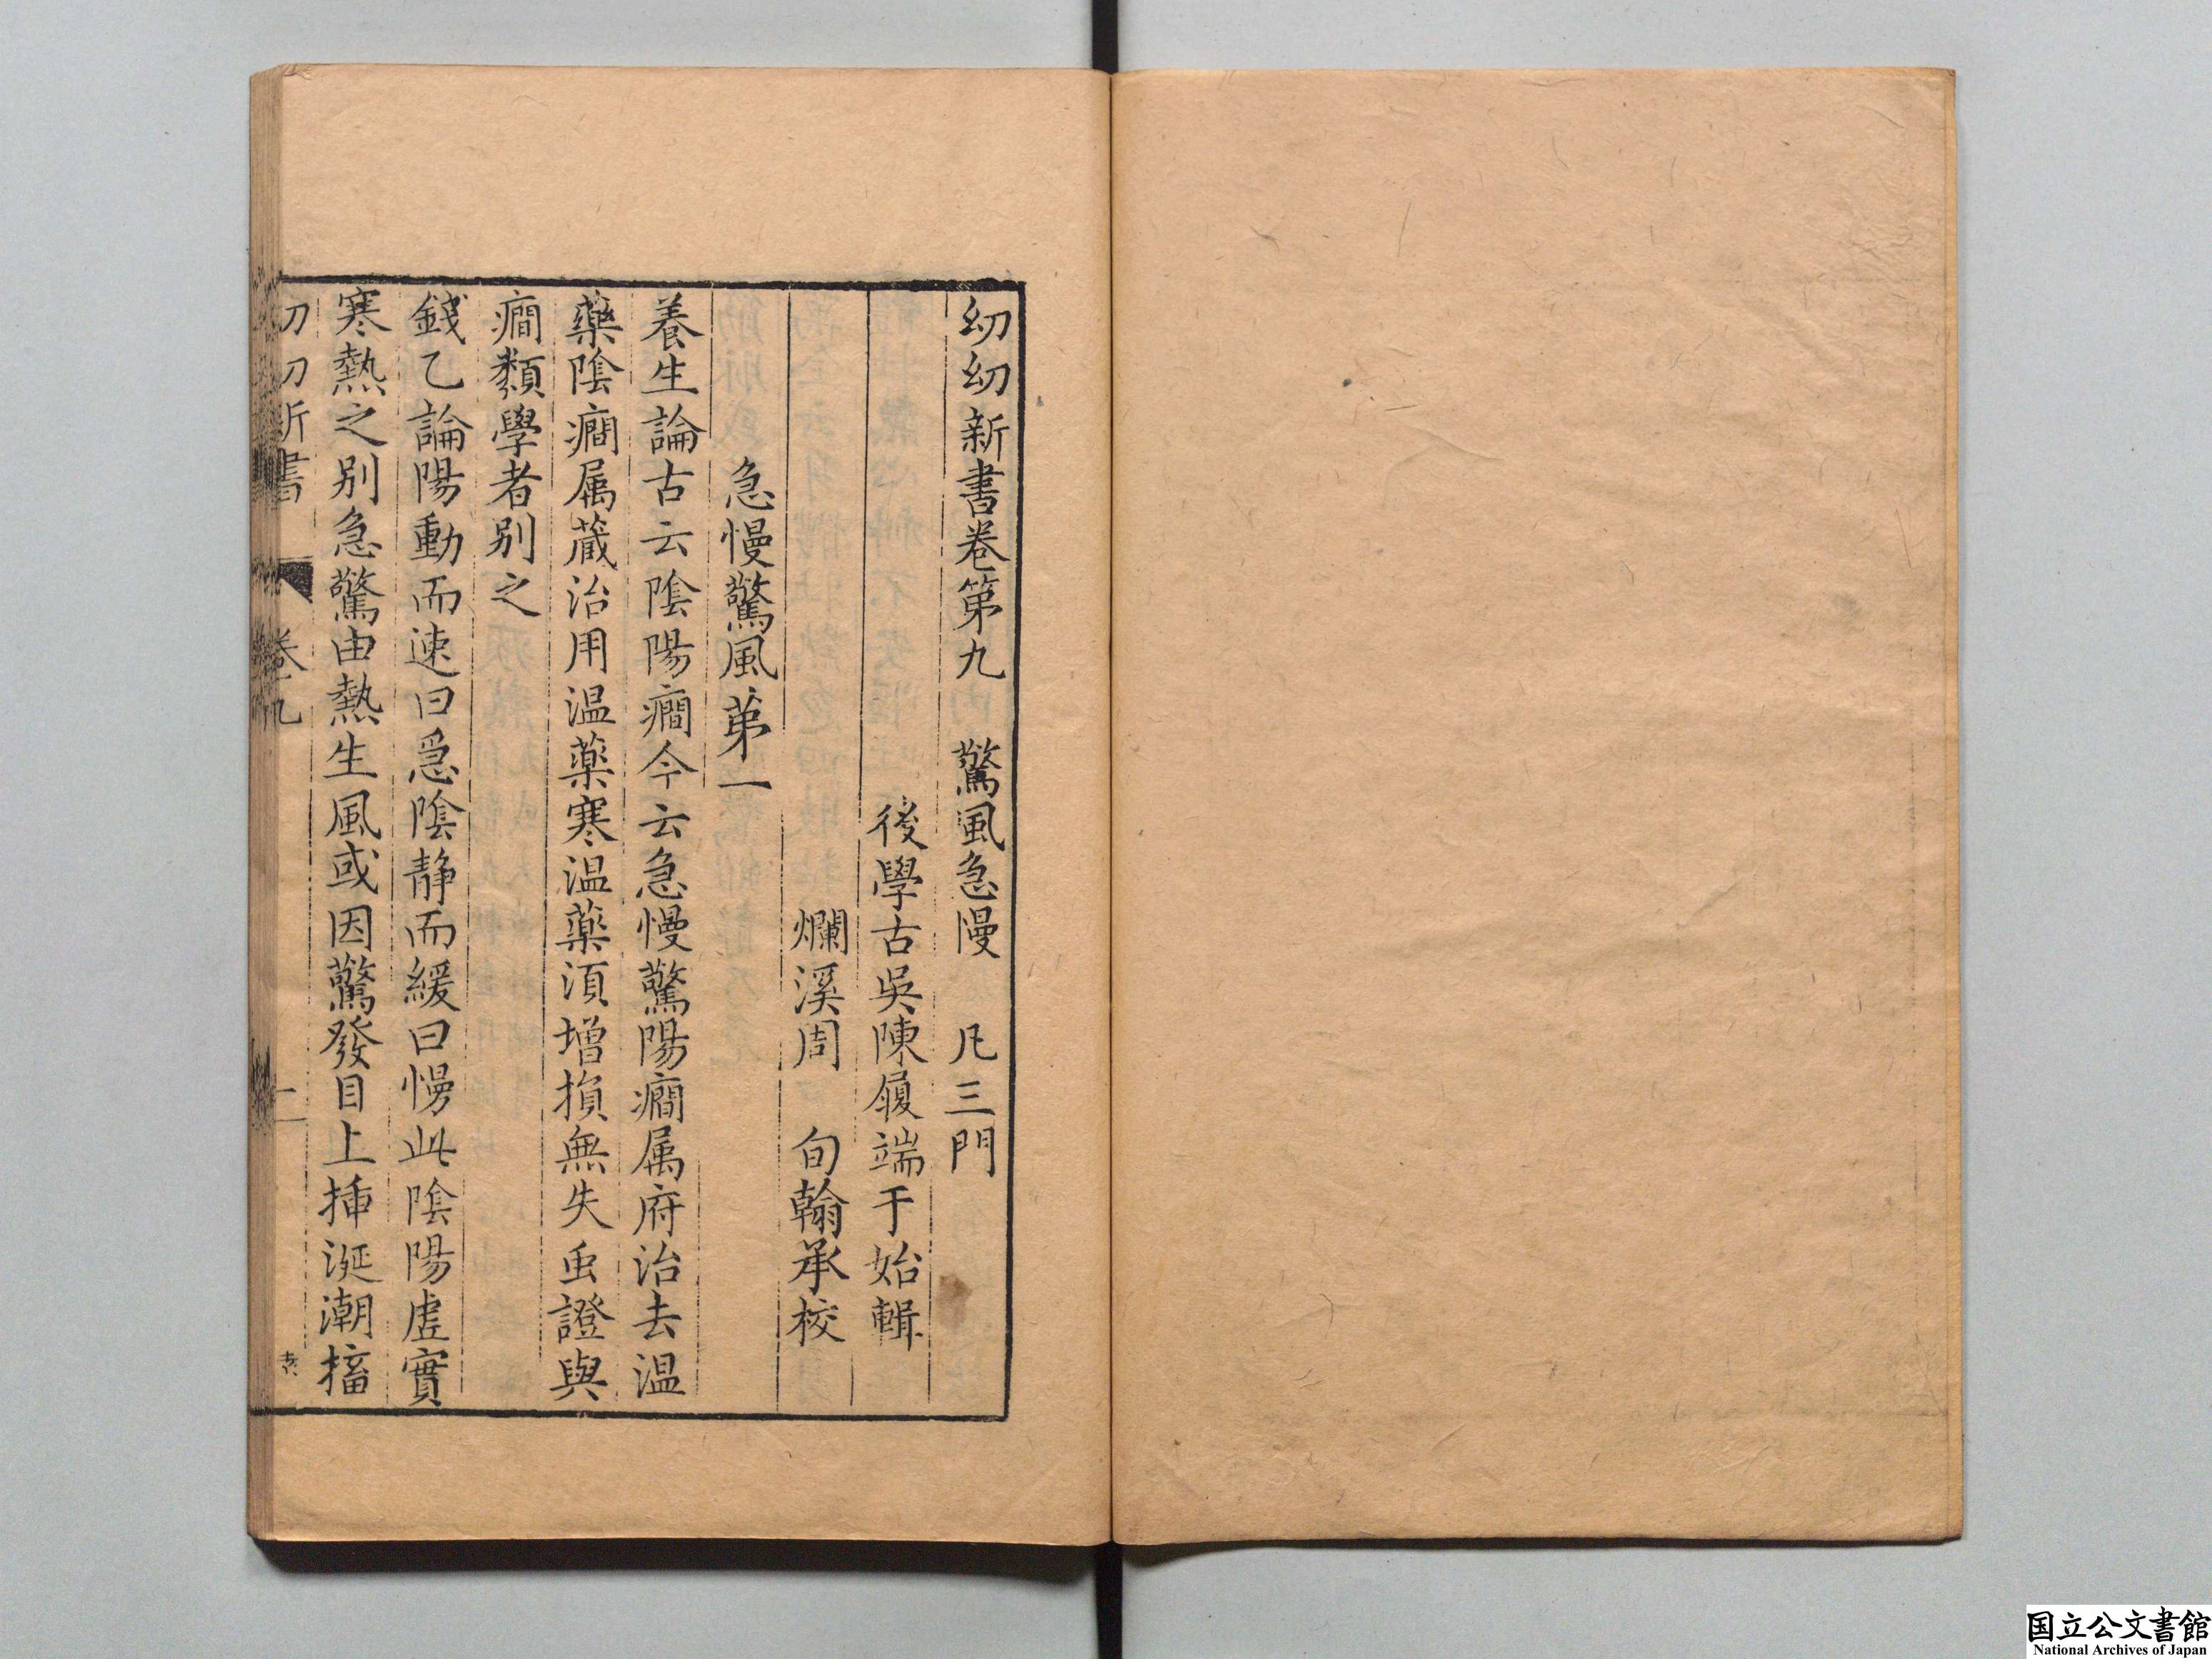 幼幼新書卷第九　驚風急慢　凡三門
後學古吳陳履端于始輯
爛溪周　旬翰承校
急慢驚風第一
養生論古云陰陽癇今云急慢驚陽癇属府治去温
藥陰癇属蔵治用温藥寒温藥湏增損無失虫證與
癇類學者别之
錢乙論陽動而速曰急陰静而緩曰慢此陰陽虛實
寒熱之别急驚由熱生風或因驚發目上揷涎潮搐
幼幼新書　卷九　一
国立公文書館
National Archives of Japan